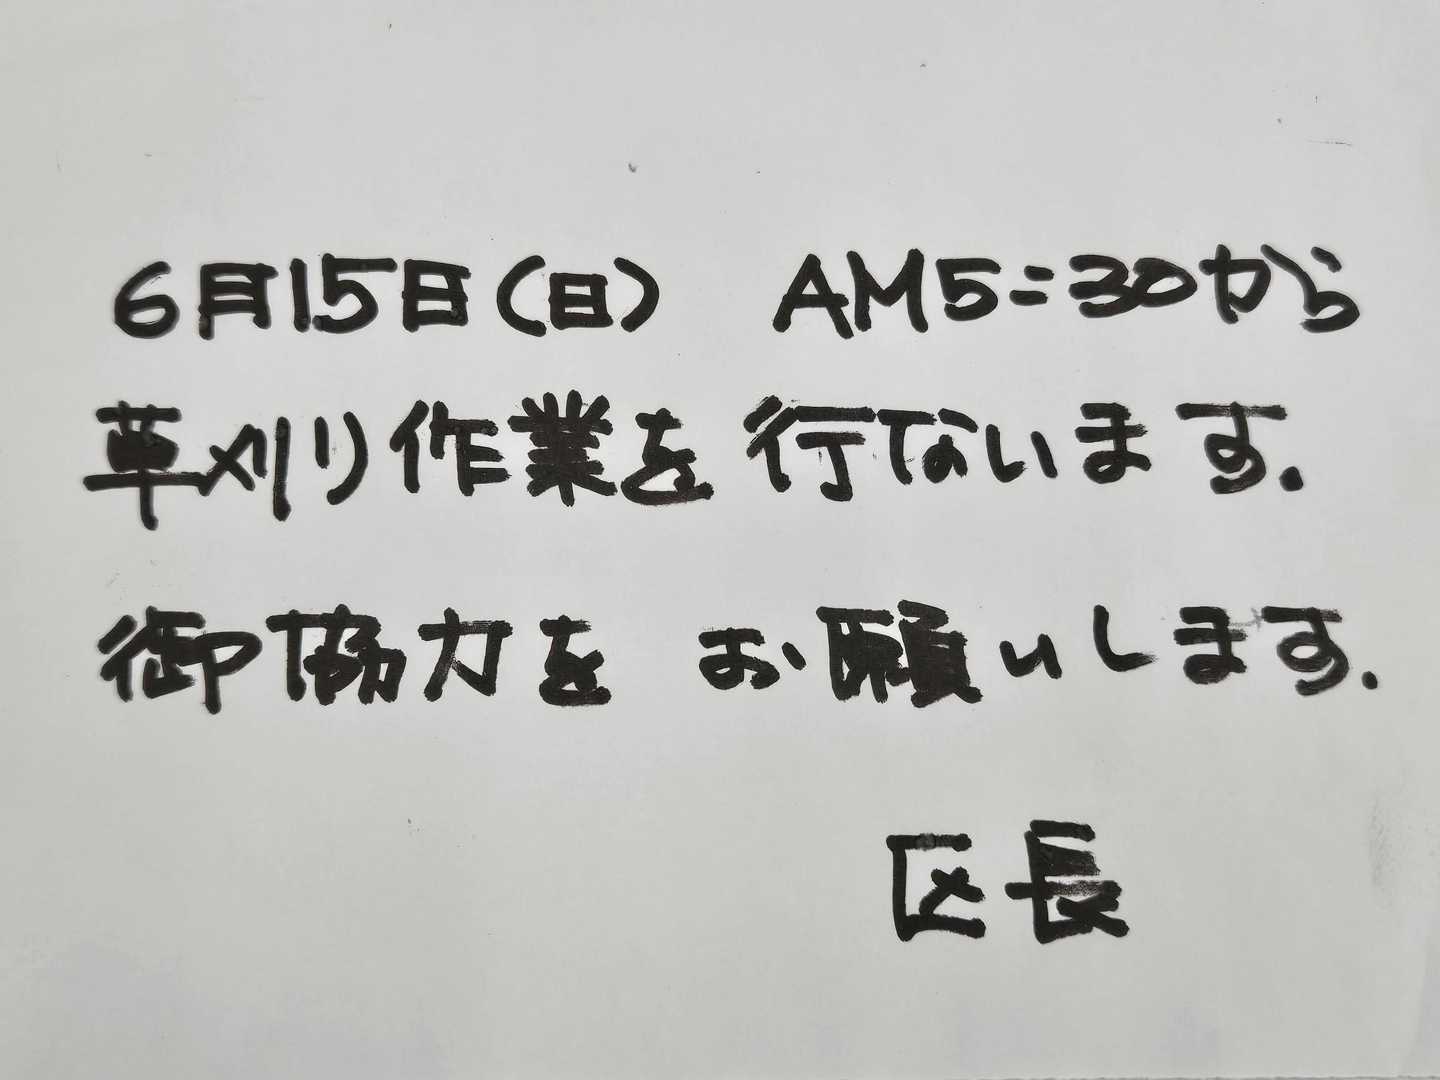 6月15日(日) AM5:30から
草刈り作業を行ないます.
御協力をお願いします.
区長